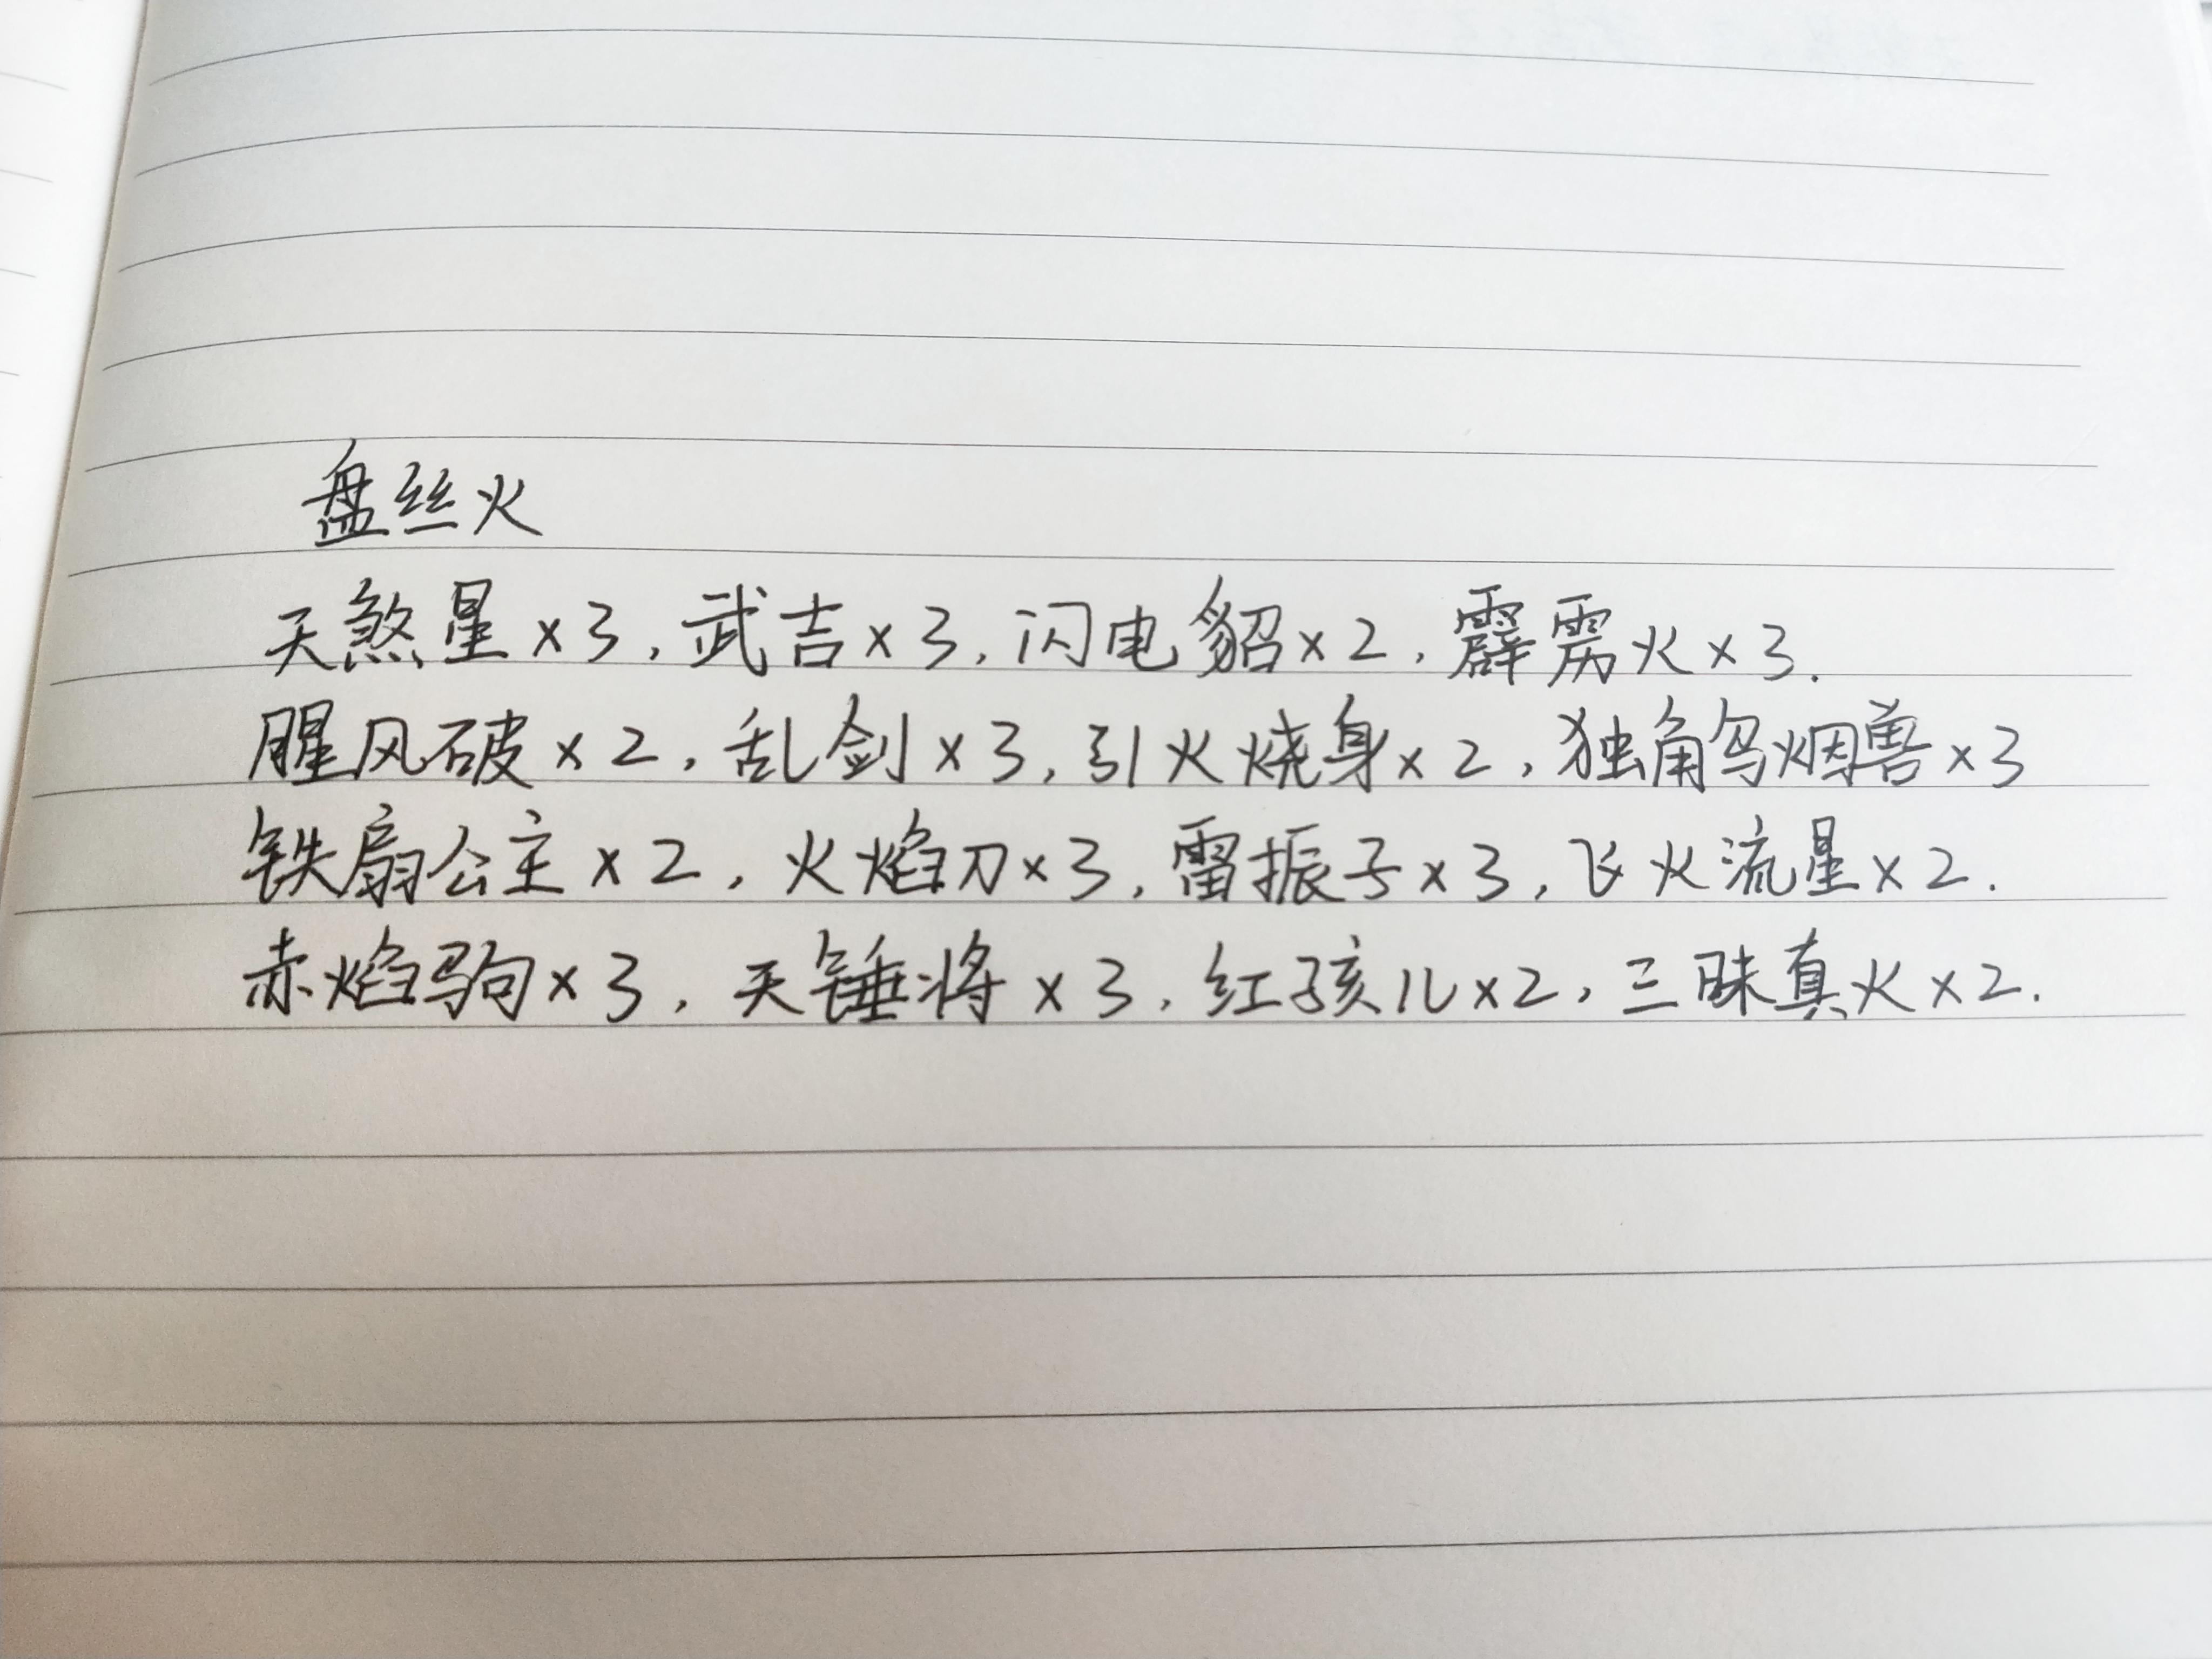 盘丝火
天煞星×3,武吉×3,闪电貂×2,霹雳火×3.
腥风破×2,乱剑×3,引火烧身×2,独角乌烟兽×3
铁扇公主×2,火焰刀×3,雷振子×3,飞火流星×2.
赤焰驹×3,天锤将×3,红孩儿×2,三昧真火×2.